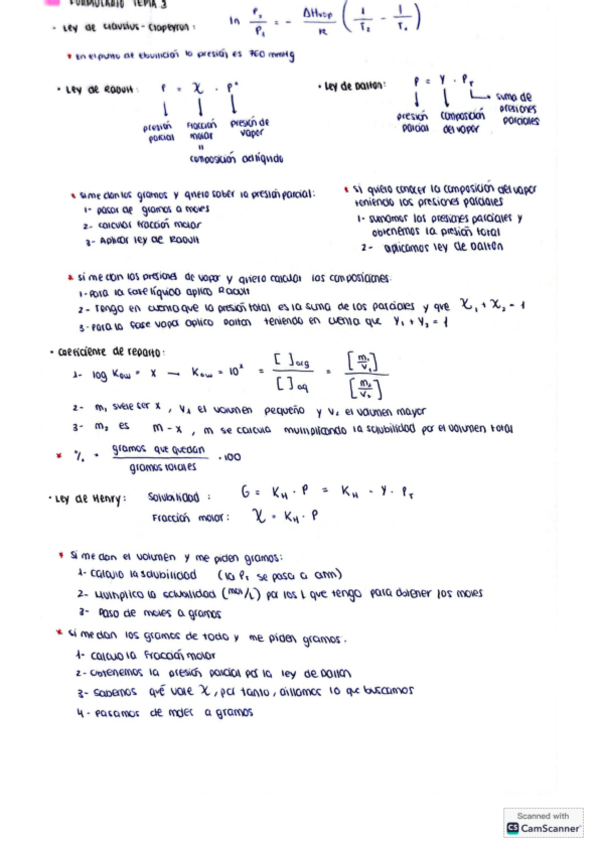 FORMULARIO TEMA 3
· Ley de Clausius-Clapeyron: ln P₂/P₁ = - ΔHvap/R (1/T₂ - 1/T₁)
* en el punto de ebullición la presión es 760 mmHg
· Ley de Raoult: P = X · P°
presión parcial
fracción molar
presión de vapor
=
composición del líquido
· Ley de Dalton: P = Y · P_T
presión parcial
composición del vapor
suma de presiones parciales
* si me dan los gramos y quiero saber la presión parcial:
1- pasar de gramos a moles
2- calcular fracción molar
3- Aplicar ley de Raoult
* si quiero conocer la composición del vapor
teniendo las presiones parciales
1- sumamos las presiones parciales y
obtenemos la presión total
2- aplicamos ley de Dalton
* si me dan las presiones de vapor y quiero calcular las composiciones:
1- Para la fase líquida aplico Raoult
2- Tengo en cuenta que la presión total es la suma de las parciales y que X₁ + X₂ = 1
3- Para la fase vapor aplico Dalton teniendo en cuenta que Y₁ + Y₂ = 1
· Coeficiente de reparto:
1- log Kow = x → Kow = 10ˣ = [ ]org / [ ]aq = [m₁/V₁] / [m₂/V₂]
2- m₁ suele ser x, V₁ el volumen pequeño y V₂ el volumen mayor
3- m₂ es m - x, m se calcula multiplicando la solubilidad por el volumen total
* % = gramos que quedan / gramos totales · 100
· Ley de Henry: Solubilidad: G = K_H · P = K_H · Y · P_T
Fracción molar: X = K_H · P
* Si me dan el volumen y me piden gramos:
1- Calculo la solubilidad (la P_T se pasa a atm)
2- Multiplico la solubilidad (mol/L) por los L que tengo para obtener los moles
3- Paso de moles a gramos
* Si me dan los gramos de todo y me piden gramos.
1- Calculo la fracción molar
2- Obtenemos la presión parcial por la ley de Dalton
3- Sabemos qué vale X, por tanto, aillamos lo que buscamos
4- Pasamos de moles a gramos
Scanned with
CS CamScanner